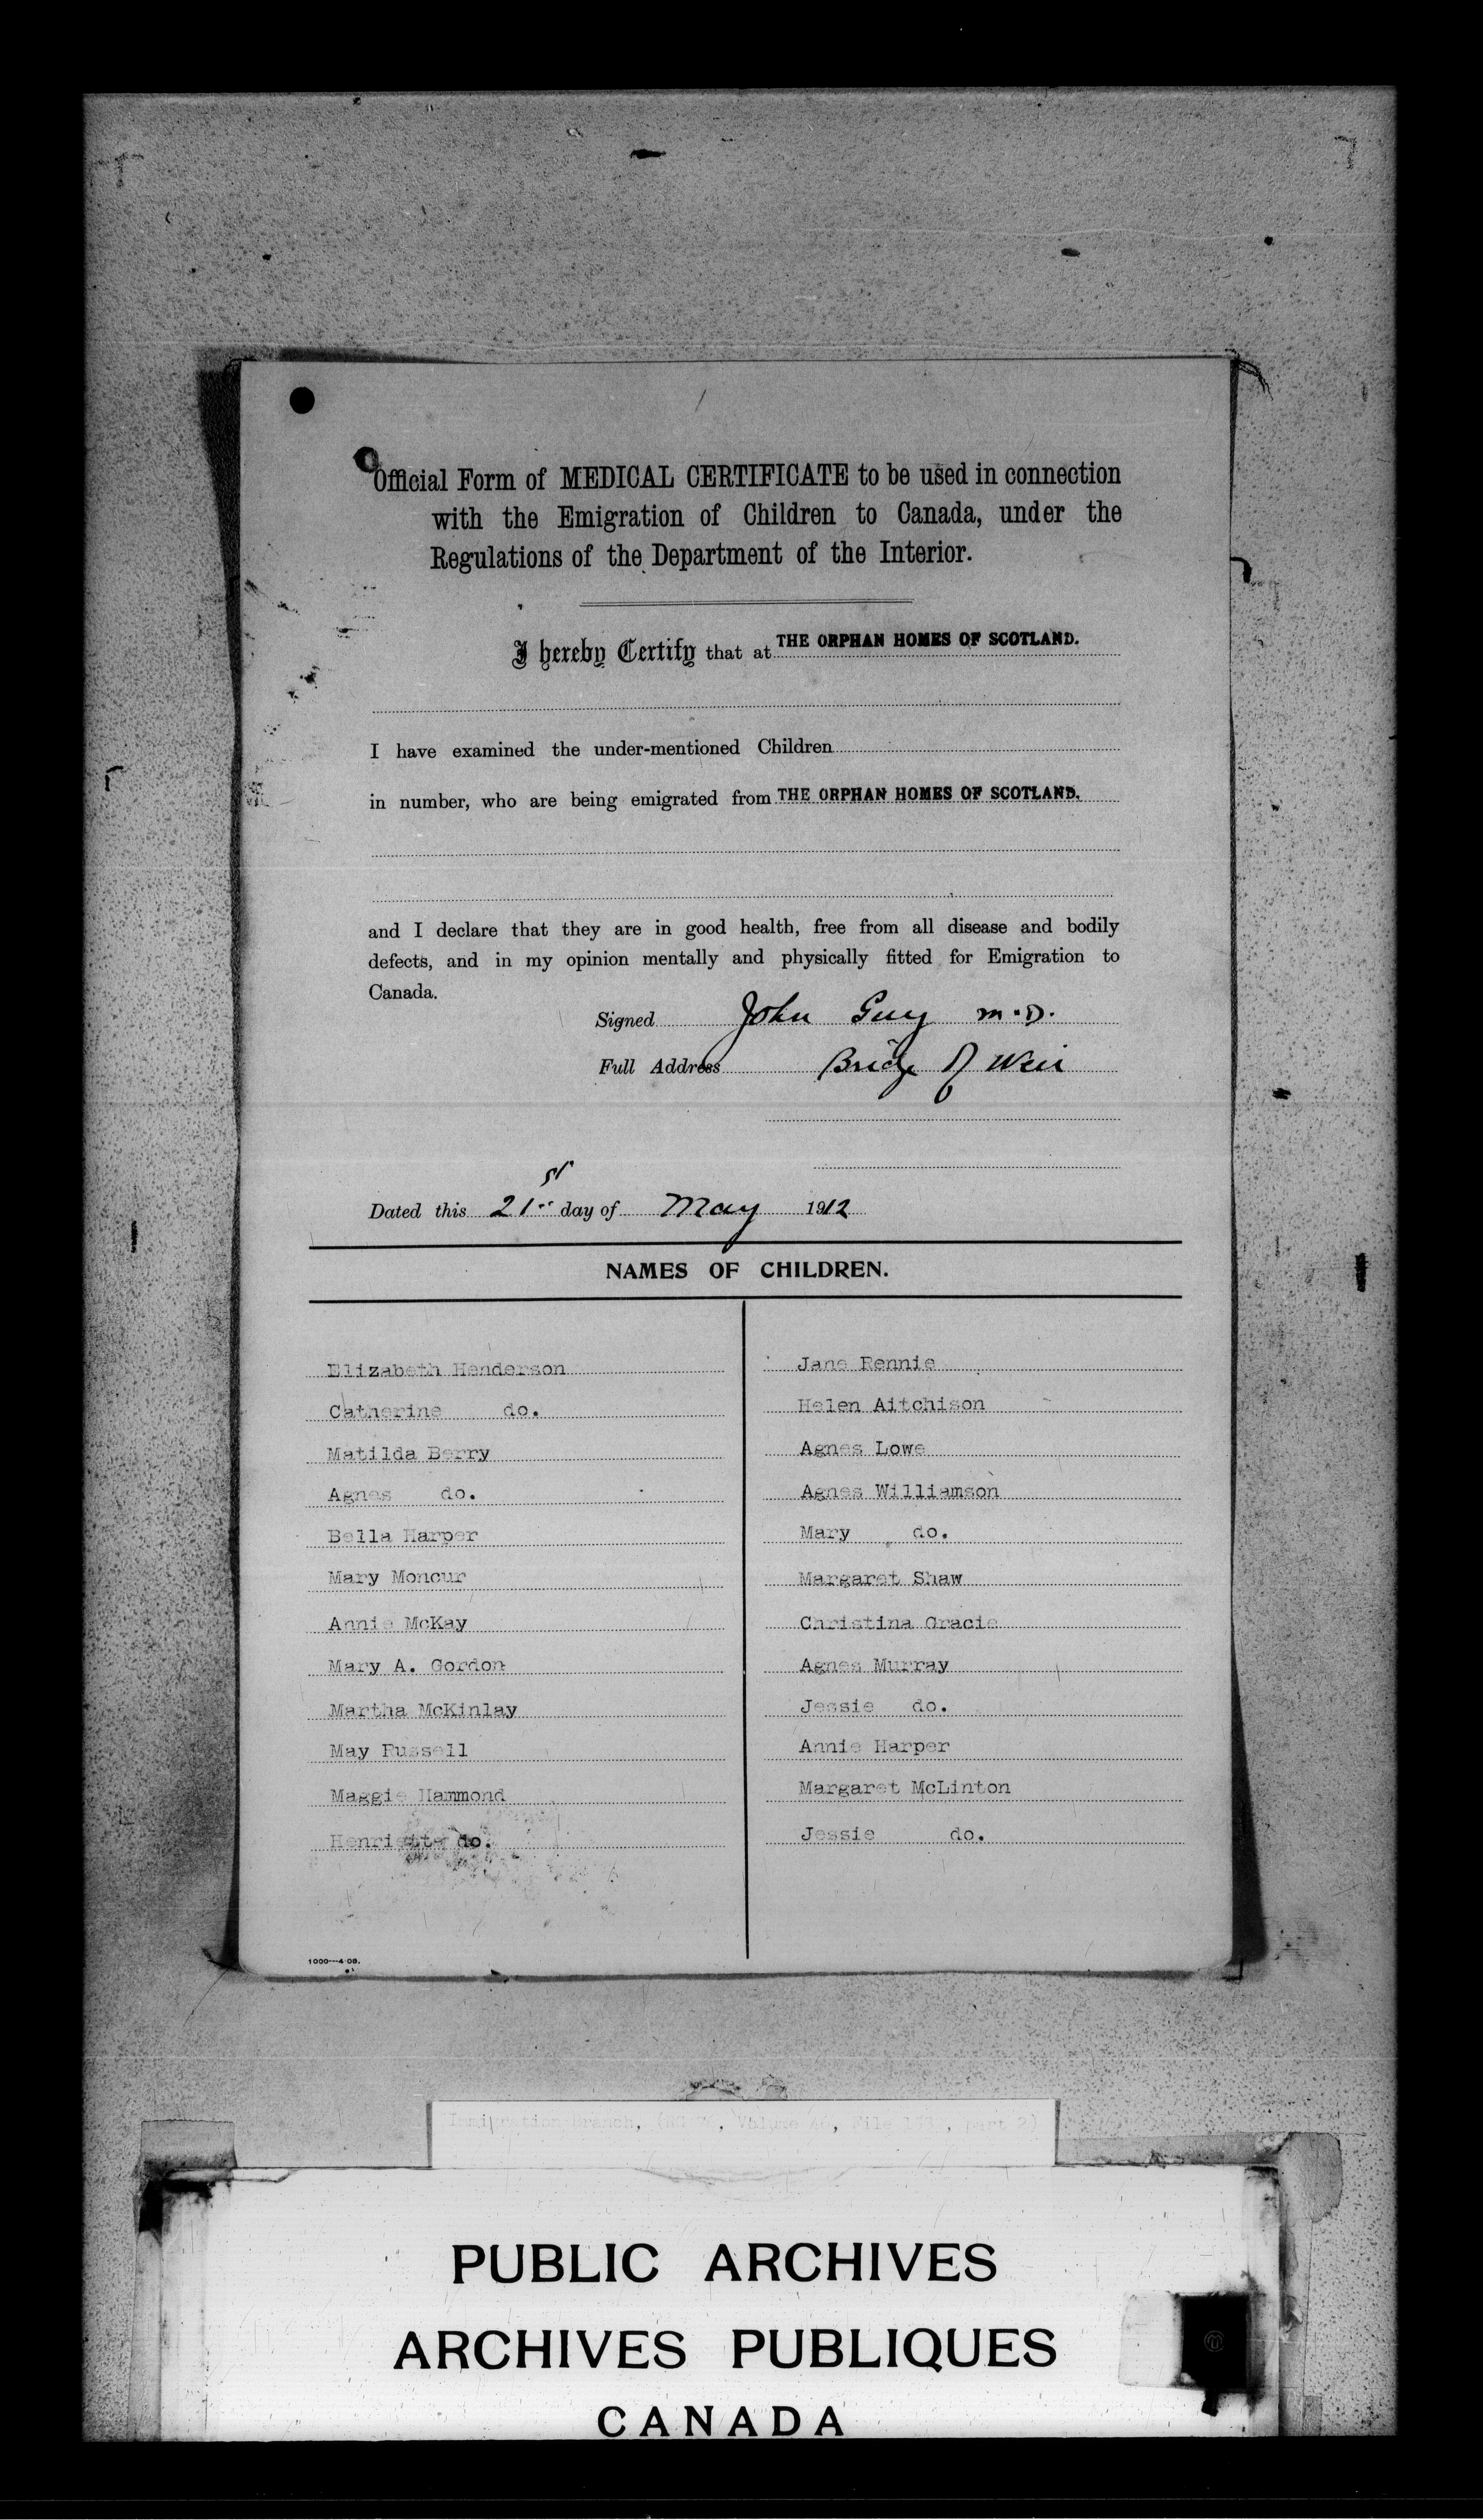 Official Form of MEDICAL CERTIFICATE to be used in connection
with the Emigration of Children to Canada, under the
Regulations of the Department of the Interior.
I hereby Certify that at THE ORPHAN HOMES OF SCOTLAND.
I have examined the under-mentioned Children
in number, who are being emigrated from THE ORPHAN HOMES OF SCOTLAND.
and I declare that they are in good health, free from all disease and bodily
defects, and in my opinion mentally and physically fitted for Emigration to
Canada.
Signed John Guy M.D.
Full Address Bridge of Weir
Dated this 21st day of May 1912
NAMES OF CHILDREN.
Elizabeth Henderson
Catherine do.
Matilda Berry
Agnes do.
Bella Harper
Mary Moncur
Annie McKay
Mary A. Gordon
Martha McKinlay
May Russell
Maggie Hammond
Henrietta do.
Jane Rennie
Helen Aitchison
Agnes Lowe
Agnes Williamson
Mary do.
Margaret Shaw
Christina Gracie
Agnes Murray
Jessie do.
Annie Harper
Margaret McLinton
Jessie do.
1000—4-08.
Immigration Branch, Volume File part 2)
PUBLIC ARCHIVES
ARCHIVES PUBLIQUES
CANADA